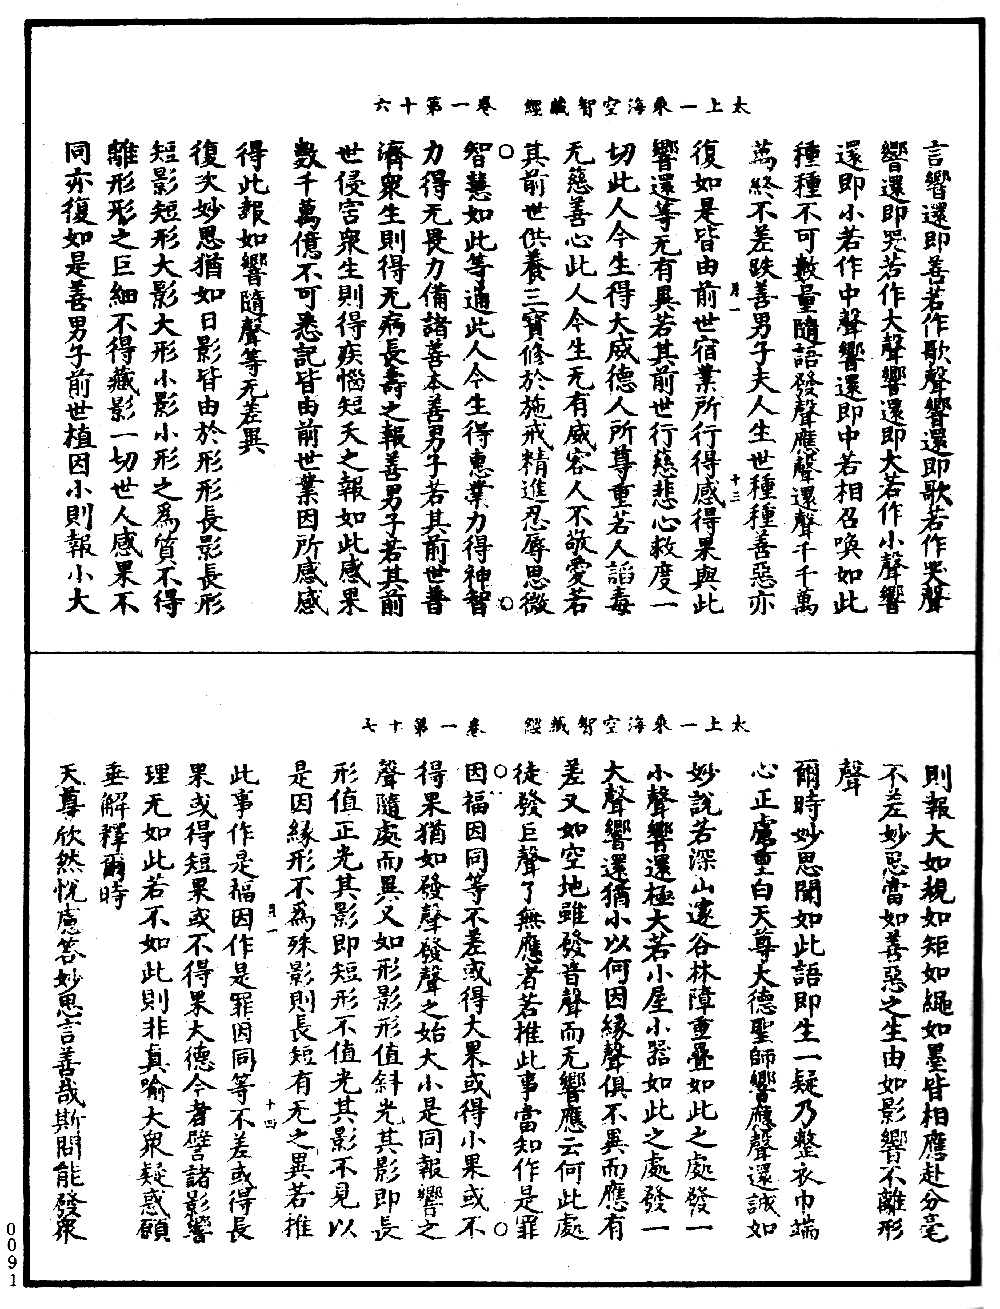 太上一乗海空智藏經　卷一第十六
言響還即善若作歌聲響還即歌若作哭聲
響還即哭若作大聲響還即大若作小聲響
還即小若作中聲響還即中若相召喚如此
種種不可數量隨語發聲應聲還聲千千萬
萬終不差跌善男子夫人生世種種善惡亦
月一　十三
復如是皆由前世宿業所行得感得果與此
響還等无有異若其前世行慈悲心救度一
切此人今生得大威德人所尊重若人謟毒
无慈善心此人今生无有威容人不敬愛若
其前世供養三寶修於施戒精進忍辱思微
智慧如此等通此人今生得惠業力得神智
力得无畏力備諸善本善男子若其前世普
濟衆生則得无病長壽之報善男子若其前
世侵害衆生則得疾惱短夭之報如此感果
數千萬億不可悉記皆由前世業因所感感
得此報如響隨聲等无差異
復次妙思猶如日影皆由於形形長影長形
短影短形大影大形小影小形之爲質不得
離形形之巨細不得藏影一切世人感果不
同亦復如是善男子前世植因小則報小大
太上一乗海空智藏經　卷一第十七
則報大如規如矩如繩如墨皆相應赴分毫
不差妙思當如善惡之生由如影響不離形
聲
爾時妙思聞如此語即生一疑乃整衣巾端
心正慮重白天尊大德聖師響應聲還誠如
妙說若深山邃谷林障重疊如此之處發一
小聲響還極大若小屋小器如此之處發一
大聲響還猶小以何因緣聲俱不異而應有
差又如空地雖發音聲而无響應云何此處
徒發巨聲了無應者若推此事當知作是罪
因福因同等不差或得大果或得小果或不
得果猶如發聲發聲之始大小是同報響之
聲隨處而異又如形影形值斜光其影即長
形值正光其影即短形不值光其影不見以
是因緣形不爲殊影則長短有无之異若推
月一　十四
此事作是福因作是罪因同等不差或得長
果或得短果或不得果大德今者譬諸影響
理无如此若不如此則非真喻大衆疑惑願
垂解釋爾時
天尊欣然悅慮答妙思言善哉斯問能發衆
0091